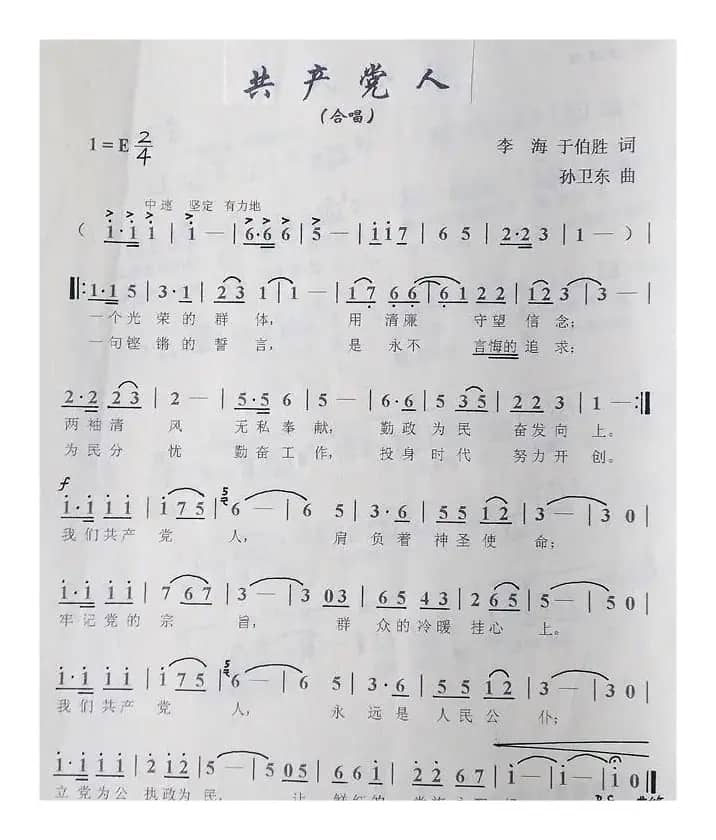 共产党人
(合唱)
1=E 2/4
李 海 于伯胜 词
孙卫东 曲
中速 坚定 有力地
( i·i i | i — | 6·6 6 | 5 — | i i 7 | 6 5 | 2·2 3 | 1 — ) |
‖: 1·1 5 | 3·1 | 2 3 1 | 1 — | 1 7 6 6 | 6 1 2 2 | 1 2 3 | 3 — |
一个光荣的群体, 用清廉 守望信念;
一句铿锵的誓言, 是永不 言悔的追求;
2·2 2 3 | 2 — | 5·5 6 | 5 — | 6·6 | 5 3 5 | 2 2 3 | 1 — :‖
两袖清 风 无私奉献, 勤政为民 奋发向上。
为民分 忧 勤奋工作, 投身时代 努力开创。
f
i·i i i | i 7 5 | 6 — | 6 5 | 3·6 | 5 5 1 2 | 3 — | 3 0 |
我们共产 党 人, 肩 负着 神圣使 命;
i·i i i | 7 6 7 | 3 — | 3 0 3 | 6 5 4 3 | 2 6 5 | 5 — | 5 0 |
牢记党的 宗 旨, 群 众的冷暖 挂心 上。
i·i i i | i 7 5 | 6 — | 6 5 | 3·6 | 5 5 1 2 | 3 — | 3 0 |
我们共产 党 人, 永 远是 人民公 仆;
立党为公 执政为民,